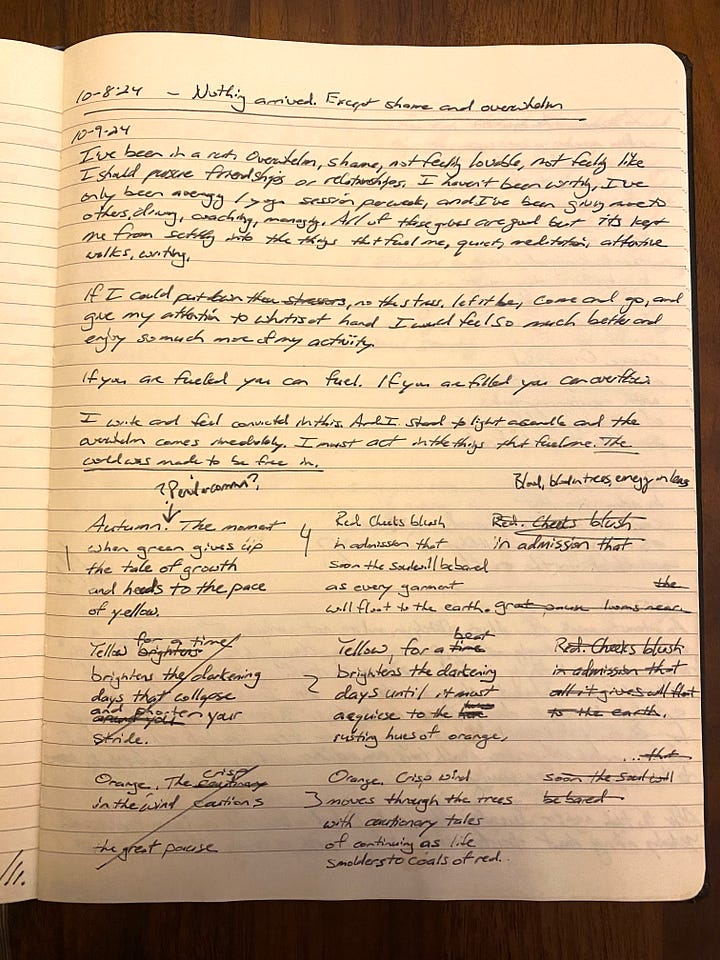 10-8-24 - Nothing arrived. Except shame and overwhelm
10-9-24
I've been in a rut. Overwhelm, shame, not feeling lovable, not feeling like
I should pursue friendships or relationships. I haven't been writing, I've
only been averagy 1 yoga session per week, and I've been giving more to
others, coaching, managing. All of these gives are good but its kept
me from settling into the things that fuel me, quiet, meditation, attentive
walks, writing.
If I could put down these stressors, no this stress, let it be, come and go, and
give my attention to what is at hand I would feel so much better and
enjoy so much more of my activity.
If you are fueled you can fuel. If you are filled you can overflow.
I write and feel convicted in this. And I stand to light a candle and the
overwhelm comes immediately. I must act in the things that fuel me. The
world was made to be free in.
? Period or comma?
Blood, blood in trees, energy in leaves
1
Autumn. The moment
when green gives up
the tale of growth
and heeds to the pace
of yellow.
Yellow for a time
brightens
brightens the darkening
days that collapse
and shorten your
around your
stride.
Orange. The crisp
cautionary
in the wind cautions
the great pause
4
Red. Cheeks blush
in admission that
soon the soul will be bared
as every garment
will float to the earth.
Yellow, for a beat
time
2
brightens the darkening
days until it must
acquiese to the
rusting hues of orange,
Orange. Crisp wind
3
moves through the trees
with cautionary tales
of continuing as life
smolders to coals of red.
Red. Cheeks blush
in admission that
the
great pause looms near
Red. Cheeks blush
in admission that
all it gives will float
to the earth.
...that
soon the soul will
be bared